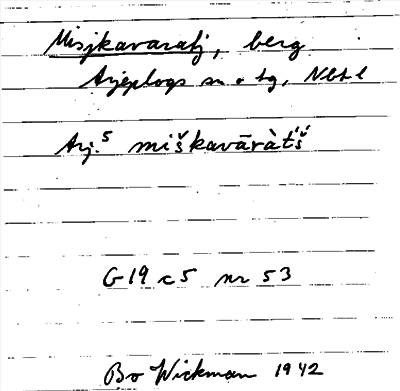 Misjkavaratj, berg
Arjeplogs sn o tg, Nbt l
Arj.⁵ miškavāràt́š́
G19 c5 nr 53
Bo Wickman 1942